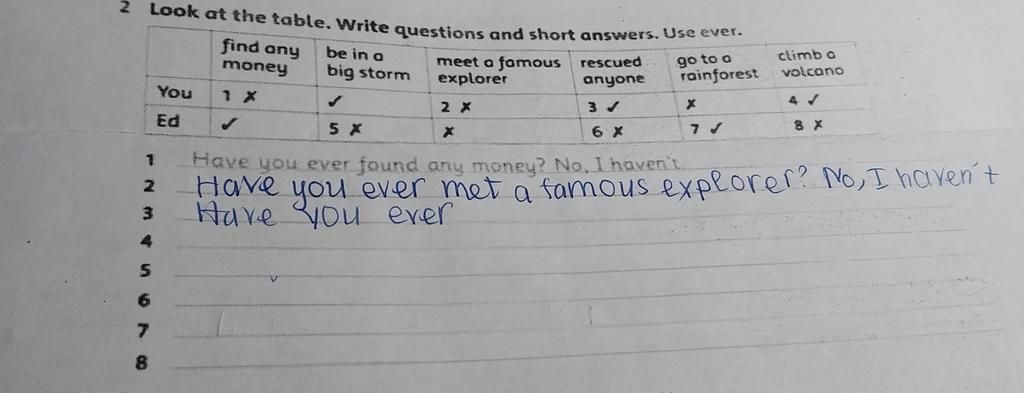 2 Look at the table. Write questions and short answers. Use ever.
find any money be in a big storm meet a famous explorer rescued anyone go to a rainforest climb a volcano
You 1 ✗ ✓ 2 ✗ 3 ✓ ✗ 4 ✓
Ed ✓ 5 ✗ ✗ 6 ✗ 7 ✓ 8 ✗
1 Have you ever found any money? No, I haven't.
2 Have you ever met a famous explorer? No, I haven't
3 Have you ever
4
5
6
7
8